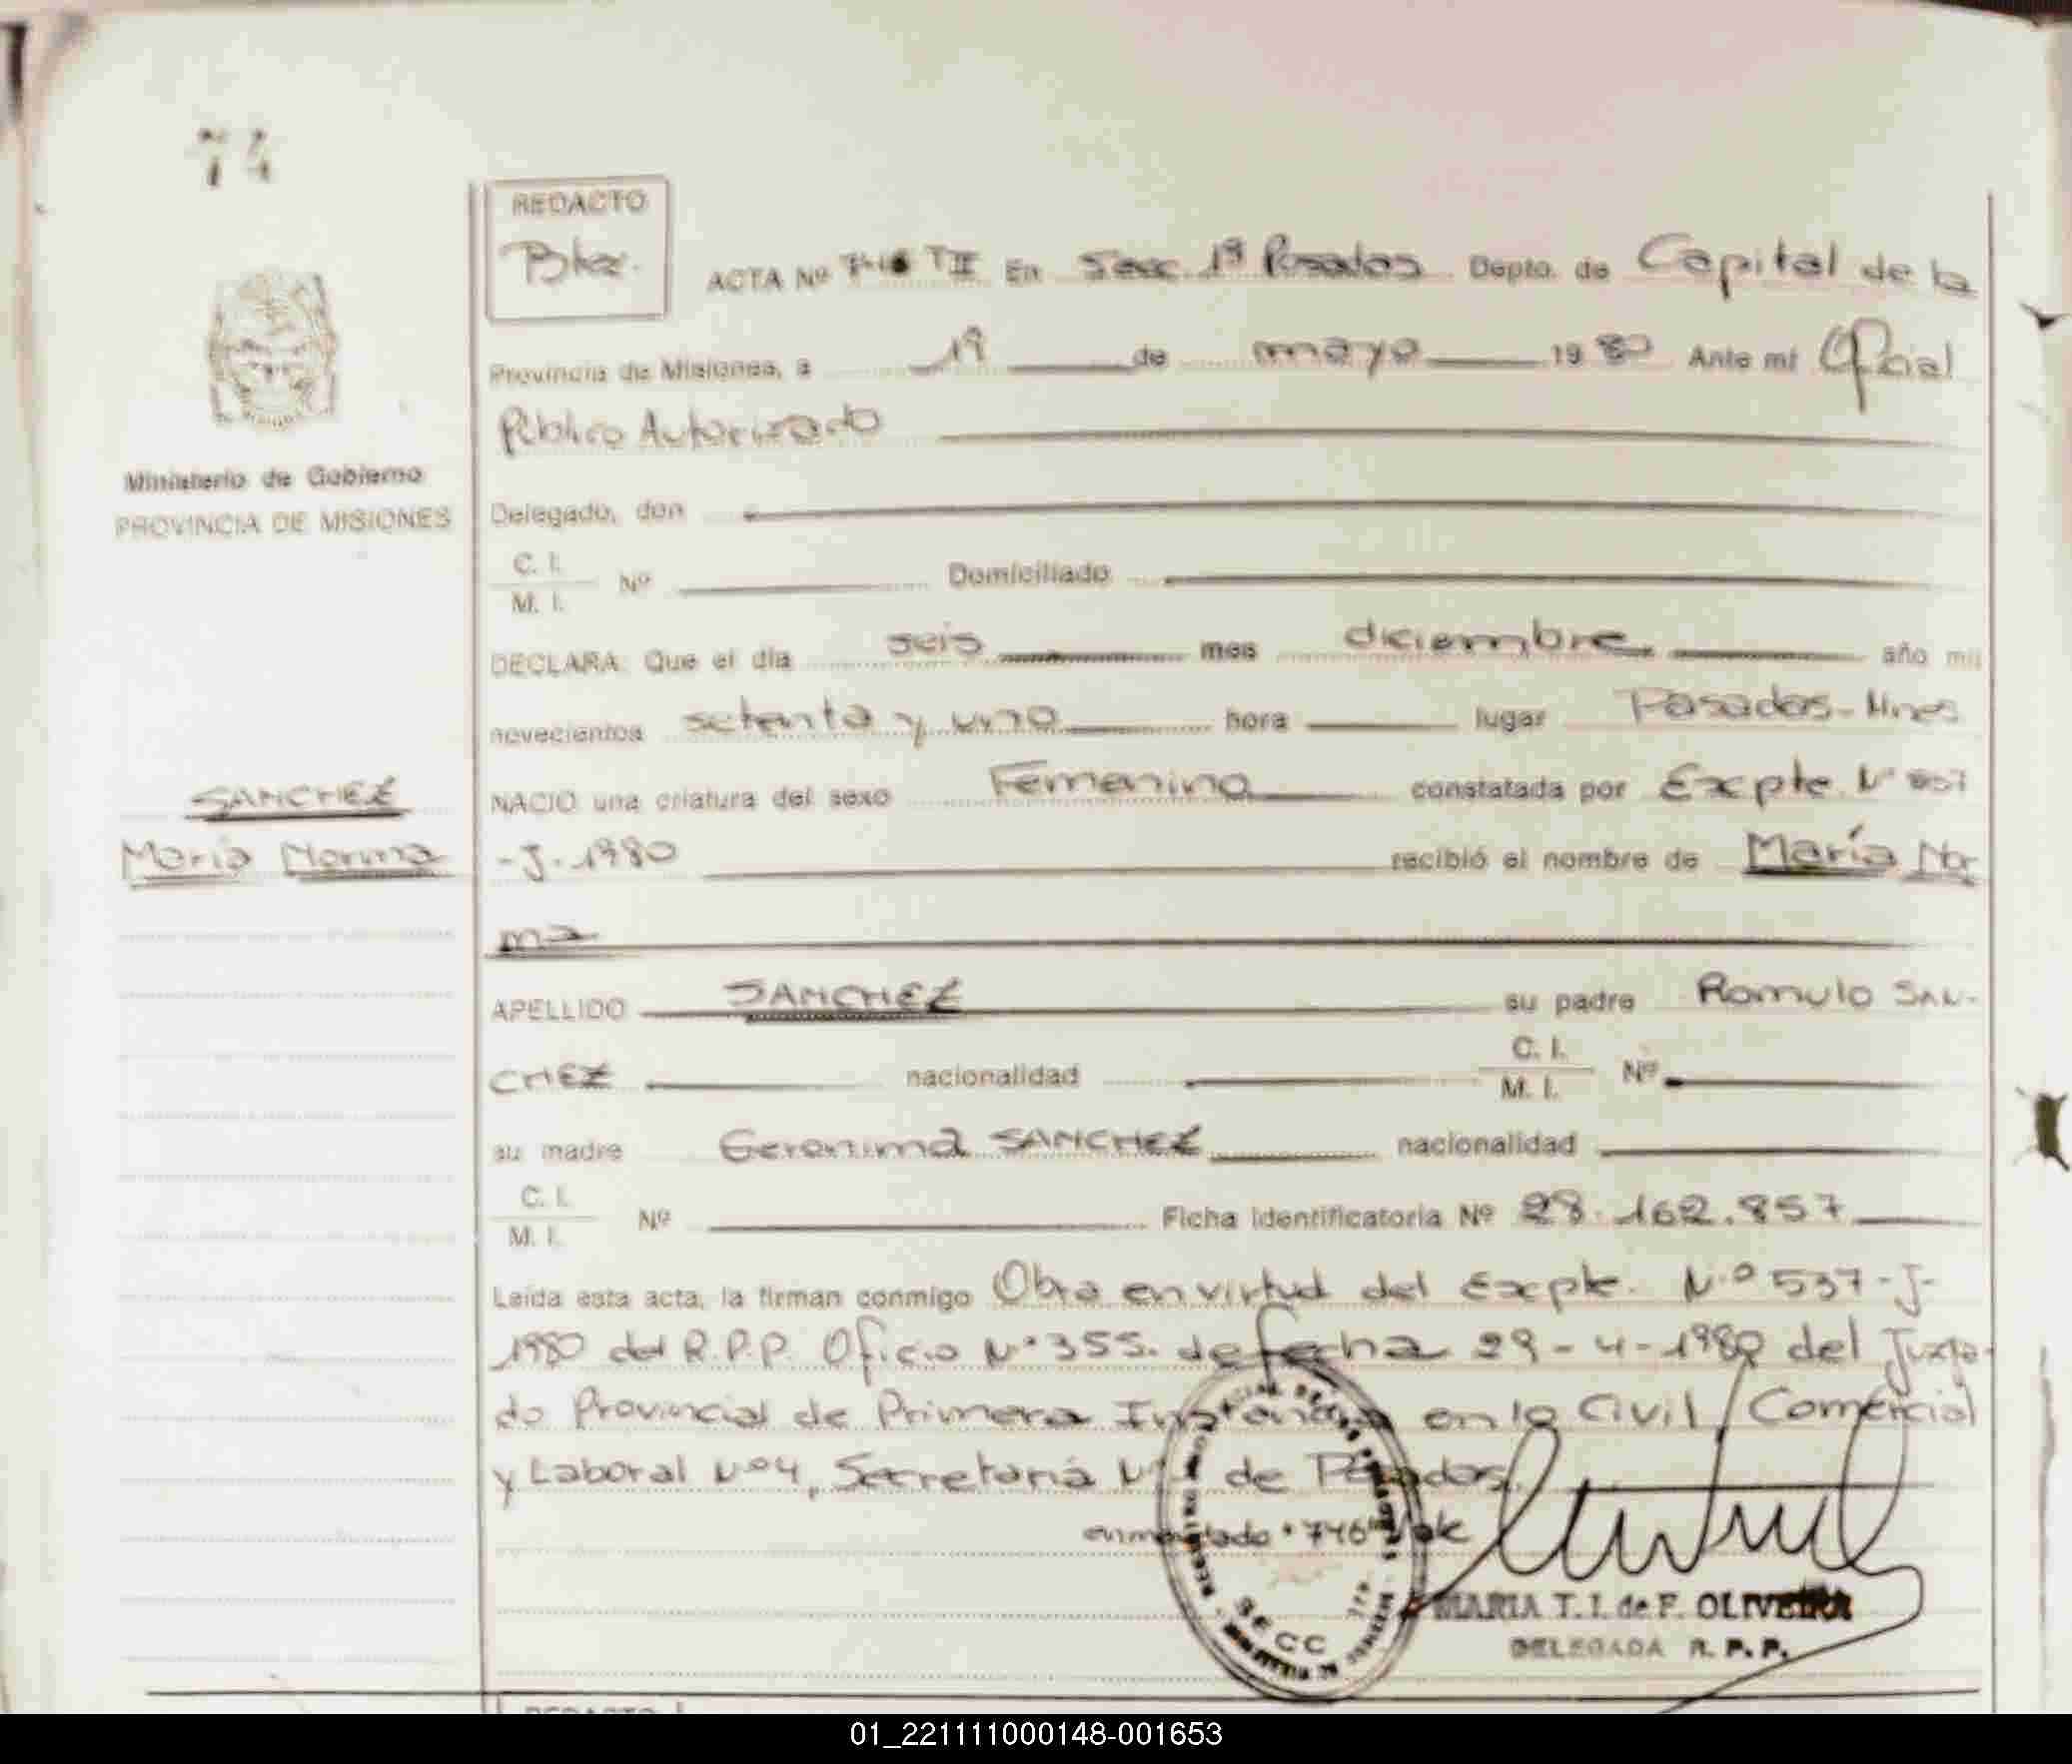 74
REDACTO
Btez.
ACTA Nº 746 T II En Secc. 1ª Posadas Depto. de Capital de la
Provincia de Misiones, a 19 de mayo 1980 Ante mí Oficial
Público Autorizado
Ministerio de Gobierno
PROVINCIA DE MISIONES
Delegado, don
C. I.
M. I. Nº Domiciliado
DECLARA: Que el día seis mes diciembre año mil
novecientos setenta y uno hora lugar Posadas-Mnes
SANCHEZ
NACIO una criatura del sexo Femenino constatada por Expte. Nº 537
María Norma
-J-1980 recibió el nombre de María Nor
ma
APELLIDO SANCHEZ su padre Romulo SAN-
CHEZ nacionalidad C. I. M. I. Nº
su madre Geronima SANCHEZ nacionalidad
C. I.
M. I. Nº Ficha identificatoria Nº 28.162.857
Leída esta acta, la firman conmigo Obra en virtud del Expte. Nº 537-J-
1980 del R.P.P. Oficio Nº 355. de fecha 29-4-1980 del Juzga-
do Provincial de Primera Instancia en lo Civil, Comercial
y Laboral Nº 4, Secretaría Nº de Posadas.
enmendado "746" Vale
SECC
MARIA T. I. de F. OLIVEIRA
DELEGADA R. P. P.
REDACTO
01_221111000148-001653